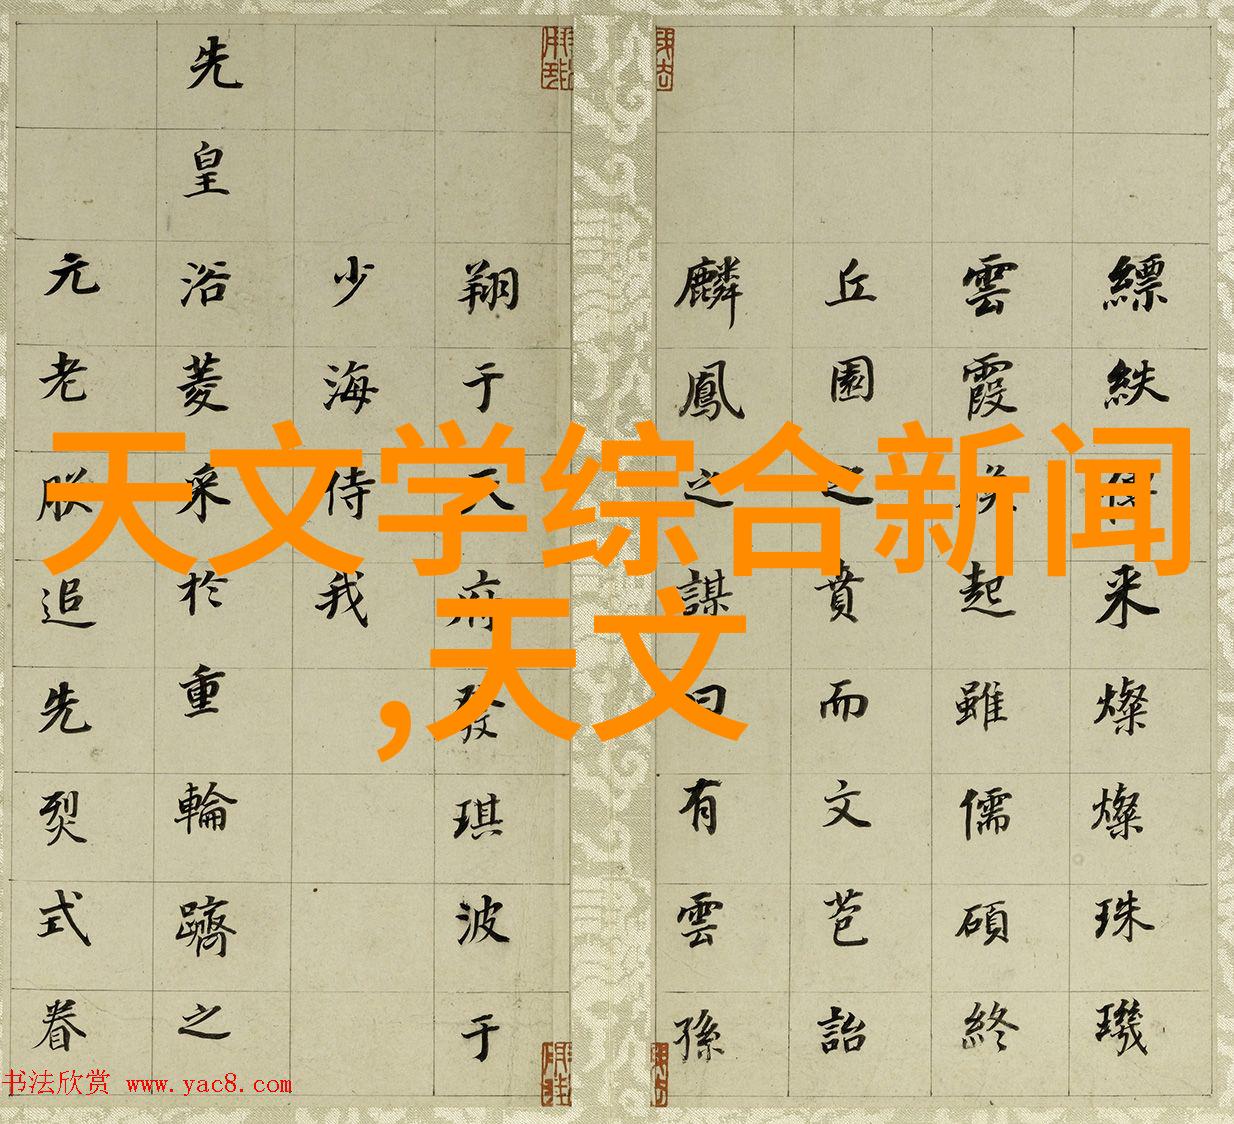 天文学综合新闻
,天文
缥帙传来燦燦珠璣
雲霞
起雖儒碩終
丘園之賁而文芑詒
麟鳳之謀曰有雲孫
翔于天府發琪波于
少海侍我
先皇浴菱采於重輪躋之
元老朕追先烈式眷
书法欣赏 www.yac8.com